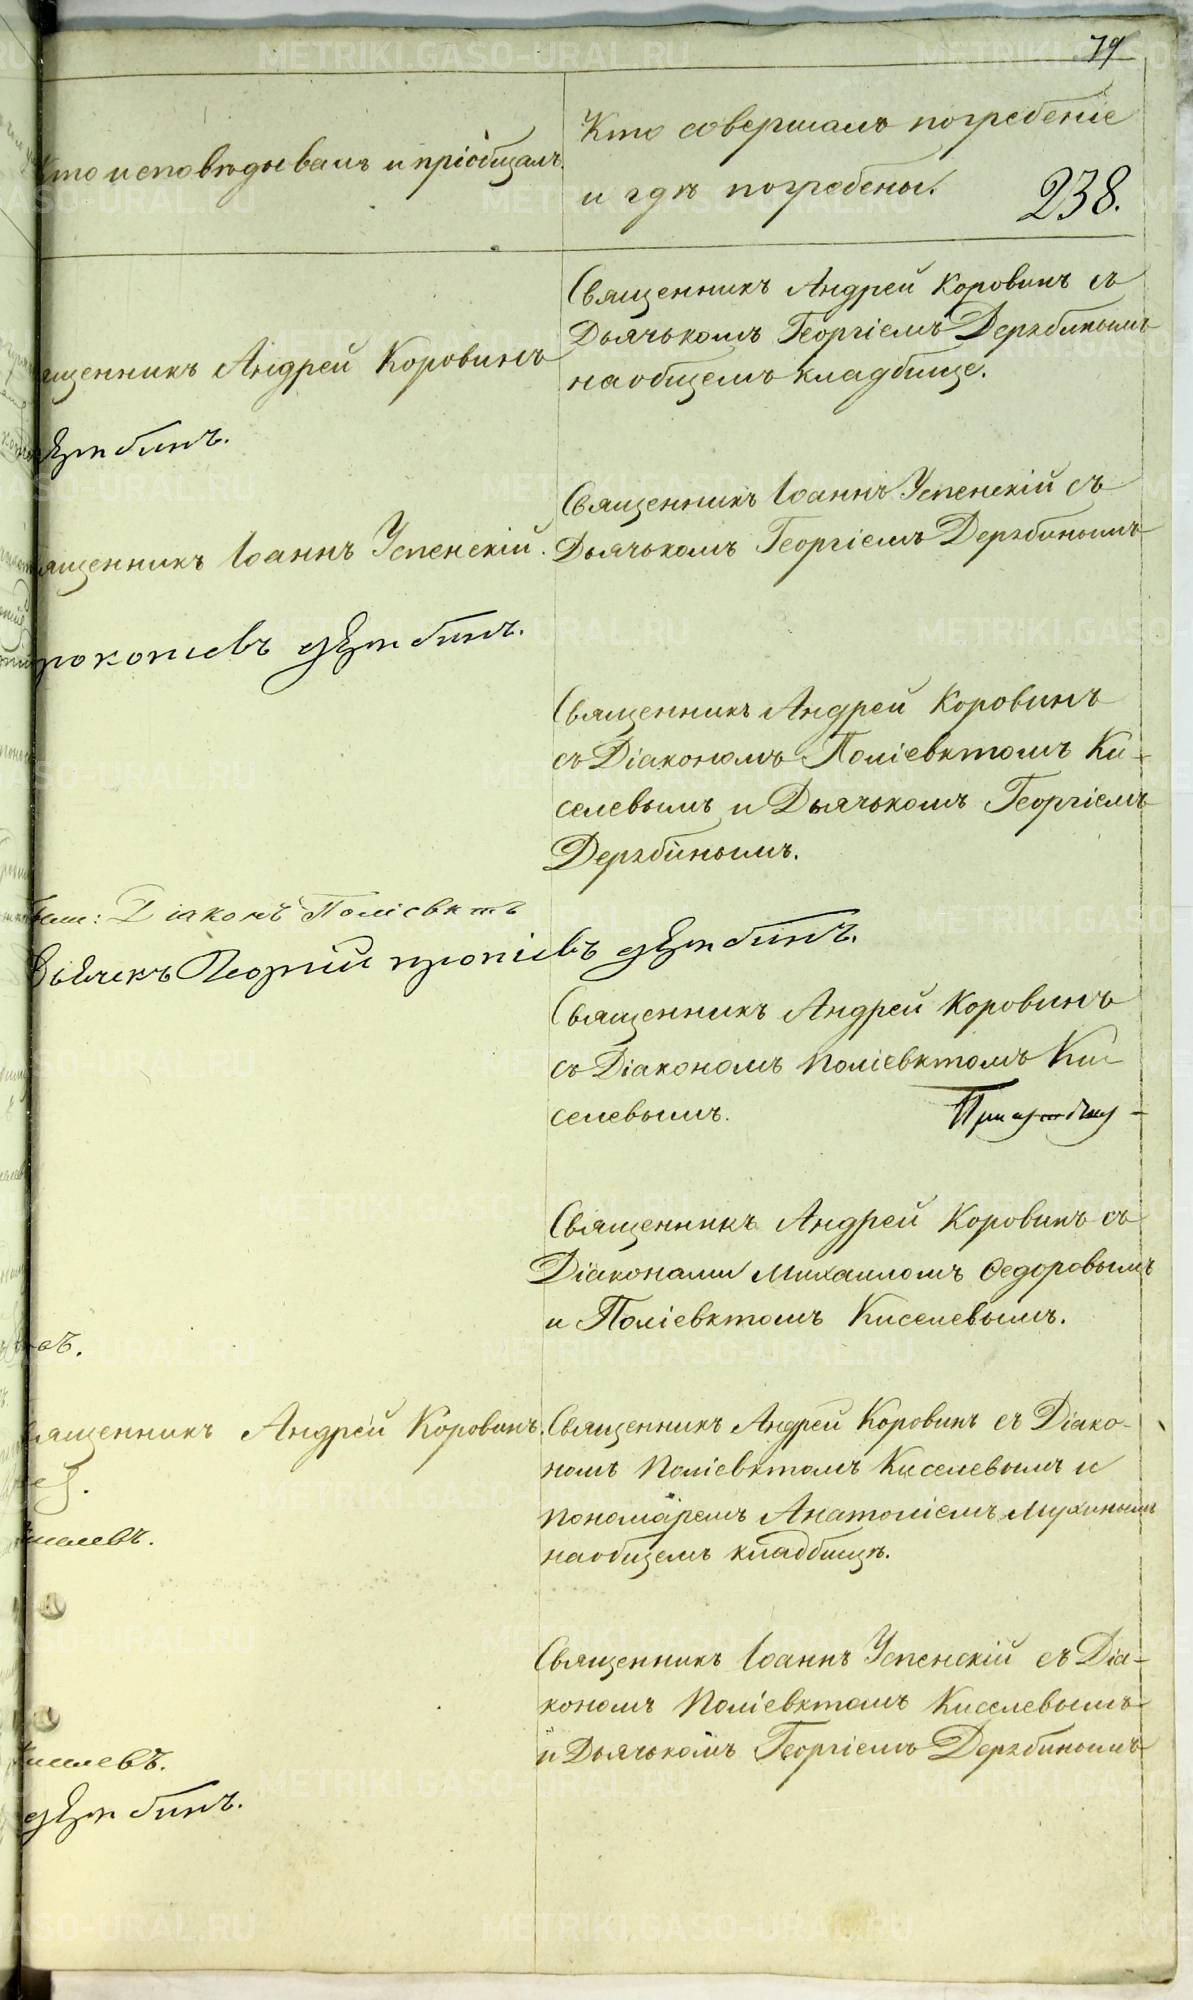 79
Кто исповѣдывалъ и пріобщалъ.
Кто совершалъ погребеніе
и гдѣ погребены.
238.
Священникъ Андрей Коровинъ съ
Дьячькомъ Георгіемъ Дерябинымъ
на общемъ кладбище.
щенникъ Андрей Коровинъ
Священникъ Іоаннъ Успенскій съ
Дьячькомъ Георгіемъ Дерябинымъ
ященникъ Іоаннъ Успенскій.
рокопіевъ Дерябинъ.
Священникъ Андрей Коровинъ
съ Діакономъ Поліевктомъ Ки-
селевымъ и Дьячькомъ Георгіемъ
Дерябинымъ.
Діаконъ Поліевктъ
Георгій Дерябинъ.
Священникъ Андрей Коровинъ
съ Діакономъ Поліевктомъ Ки-
селевымъ.
Священникъ Андрей Коровинъ съ
Діаконами Михаиломъ Ѳедоровымъ
и Поліевктомъ Киселевымъ.
овъ.
ященникъ Андрей Коровинъ.
Священникъ Андрей Коровинъ съ Діако-
номъ Поліевктомъ Киселевымъ и
пономаремъ Анатоліемъ Мухинымъ
на общемъ кладбищѣ.
Священникъ Іоаннъ Успенскій съ Діа-
кономъ Поліевктомъ Киселевымъ
и Дьячькомъ Георгіемъ Дерябинымъ
иселевъ.
Дерябинъ.
METRIKI.GASO-URAL.RU